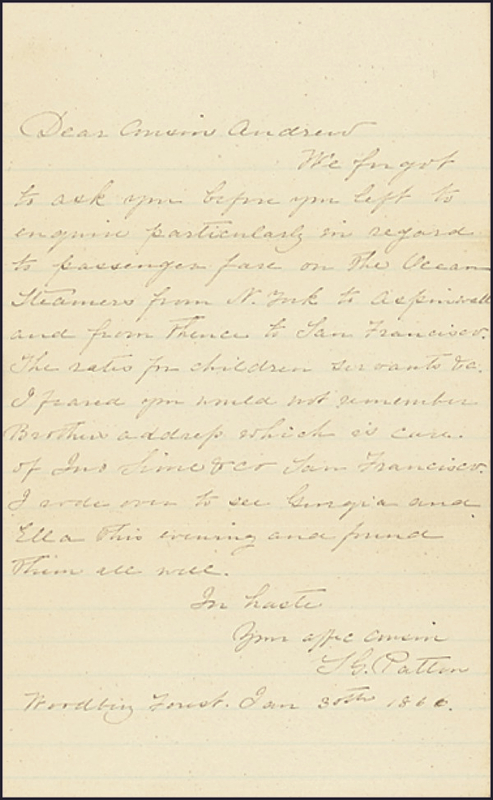 Dear Cousin Andrew
We forgot
to ask you before you left to
enquire particularly in regard
to passenger fare on the Ocean
Steamers from N. York to Aspinwall
and from thence to San Francisco.
The rates for children servants &c.
I feared you would not remember
Brothers address which is care
of Jno Sime & co San Francisco.
I rode over to see Georgia and
Ella this evening and found
them all well.
In haste
Your affec cousin
S G. Patton
Woodbury Forest. Jan 30th